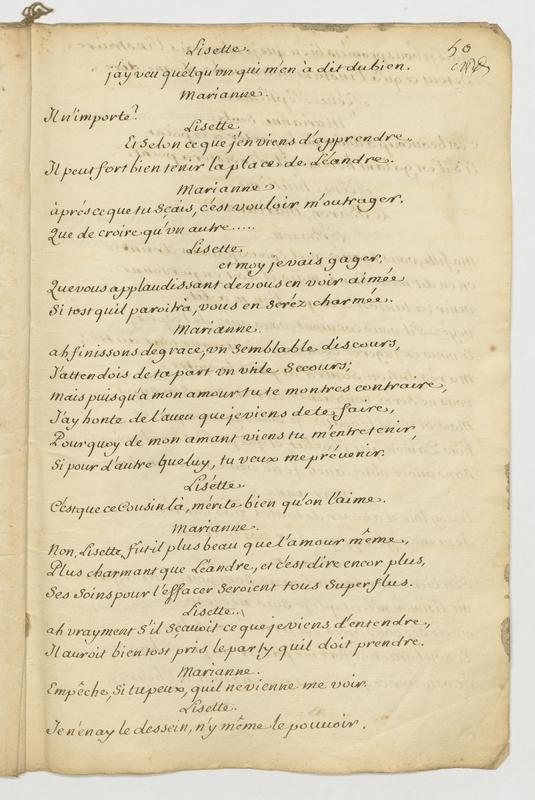 Lisette.
50
j'ay veu quelqu'vn qui m'en à dit du bien.
Marianne.
Il n'importe?
Lisette.
Et selon ce que j'en viens d'apprendre.
Il peut fort bien tenir la place de Léandre.
Marianne
àprés ce que tu sçais, c'est vouloir m'outrager.
Que de croire qu'vn autre.....
Lisette.
et moy je vais gager,
Que vous applaudissant de vous en voir aimée
Si tost qu'il paroitrà, vous en serez charmée.
Marianne.
ah finissons de grace, vn semblable discours,
J'attendois de ta part vn vtile secours;
mais puisqu'a mon amour tu te montres contraire,
J'ay honte de l'aueu que je viens de te faire,
Pourquoy de mon amant viens tu m'entretenir,
Si pour d'autre que luy, tu veux me prévenir.
Lisette.
C'est que ce Cousin là, mérite bien qu'on l'aime.
Marianne.
Non, Lisette, fût il plus beau que l'amour même,
Plus charmant que Léandre, et c'est dire encor plus,
Ses soins pour l'effacer seroient tous superflus.
Lisette.
ah vrayment s'il sçauoit ce que je viens d'entendre,
Il auroit bien tost pris le party qu'il doit prendre.
Marianne.
Empêche, si tu peux, qu'il ne vienne me voir.
Lisette.
Je n'en ay le dessein, n'y même le pouuoir.